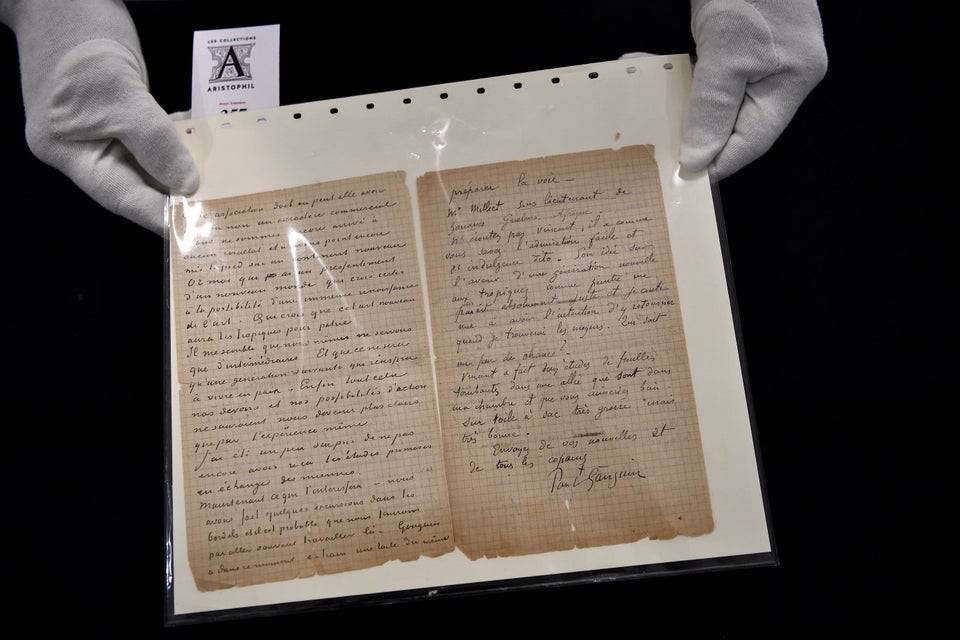 LES COLLECTIONS
A
ARISTOPHIL
257
association doit on peut elle avoir
ou non un caractère commercial
nous ne sommes encore arrivé à
aucun resultat et n'avons point encore
mis le pied sur un continent nouveau
Or moi qui ai un pressentiment
d'un nouveau monde qui crois certes
à la possibilité d'une immense renaissance
de l'art. Que crois que cet art nouveau
aura les tropiques pour patrie
Il me semble que nous mêmes ne servons
que d'intermédiaires. Et que ce ne sera
qu'une génération suivante qui réussira
à vivre en paix. Enfin tout cela
nos devoirs et nos possibilités d'action
ne sauraient nous devenir plus clairs
que par l'expérience même
J'ai été un peu surpris de ne pas
encore avoir reçu les études promises
en échange des miennes.
Maintenant ce que t'interessera – nous
avons fait quelques excursions dans les
bordels et il est probable que nous finirons
par aller souvent travailler là. Gauguin
a dans ce moment en train une toile du même
préparer la voie –
Mr Milliet sous lieutenant de
Zouaves Guelma Afrique.
N'écoutez pas Vincent, il a comme
vous savez l'admiration facile et
l'indulgence dito. Son idée sur
l'avenir d'une génération nouvelle
aux tropiques comme peintre me
parait absolument juste et je continue
à avoir l'intention d'y retourner
quand je trouverai les moyens. Qui sait
un peu de chance?
Vincent a fait deux études de feuilles
tombantes dans une allée qui sont dans
ma chambre et que vous aimeriez bien
sur toile à sac très grosse mais,
très bonne.
Envoyez de vos nouvelles et
de tous les copains
Paul Gauguin